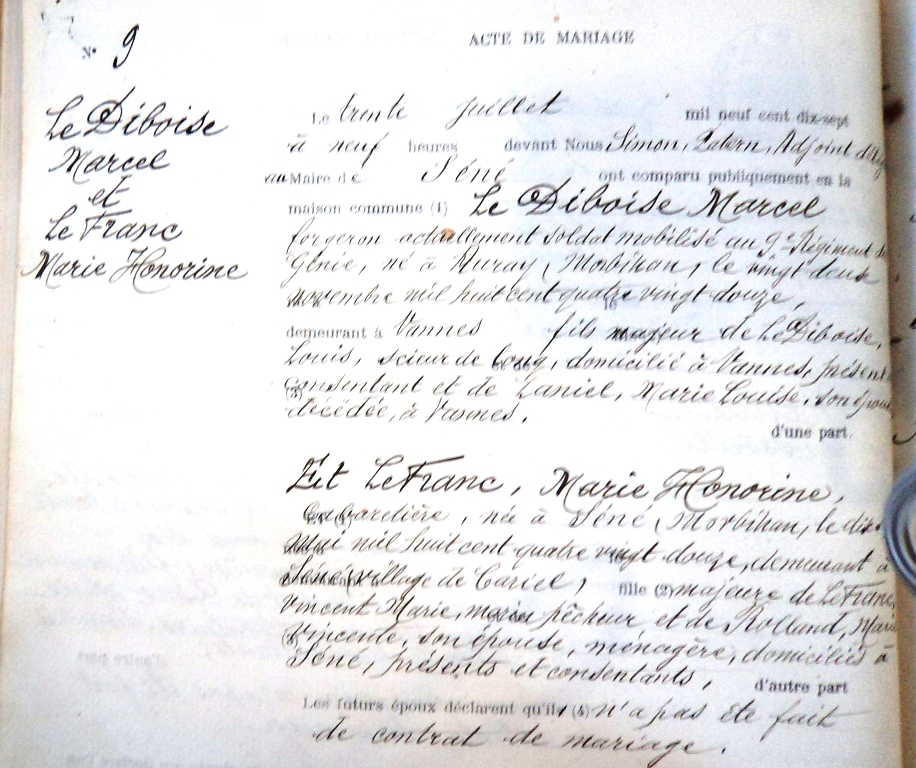 N° 9
ACTE DE MARIAGE
Le Diboise
Marcel
et
Le Franc
Marie Honorine
Le trente Juillet mil neuf cent dix-sept
à neuf heures devant Nous Simon, Patern, Adjoint
au Maire de Séné ont comparu publiquement en la
maison commune (1) Le Diboise Marcel
forgeron actuellement soldat mobilisé au 9e Régiment de
Génie, né à Auray, Morbihan, le vingt deux
novembre mil huit cent quatre vingt douze,
demeurant à Vannes fils majeur de Le Diboise,
Louis, scieur de long, domicilié à Vannes, présent
consentant et de Laniel, Marie Louise, son épouse
décédée, à Vannes.
d'une part.
Et Le Franc, Marie Honorine,
Cabaretière, née à Séné, Morbihan, le dix
Mai mil huit cent quatre vingt douze, demeurant à
Séné, village de Cariel, fille (2) majeure de Le Franc,
Vincent Marie, marin pêcheur et de Rolland, Marie
Vincente, son épouse, ménagère, domiciliés à
Séné, présents et consentants, d'autre part
Les futurs époux déclarent qu'il (4) n'a pas été fait
de contrat de mariage.